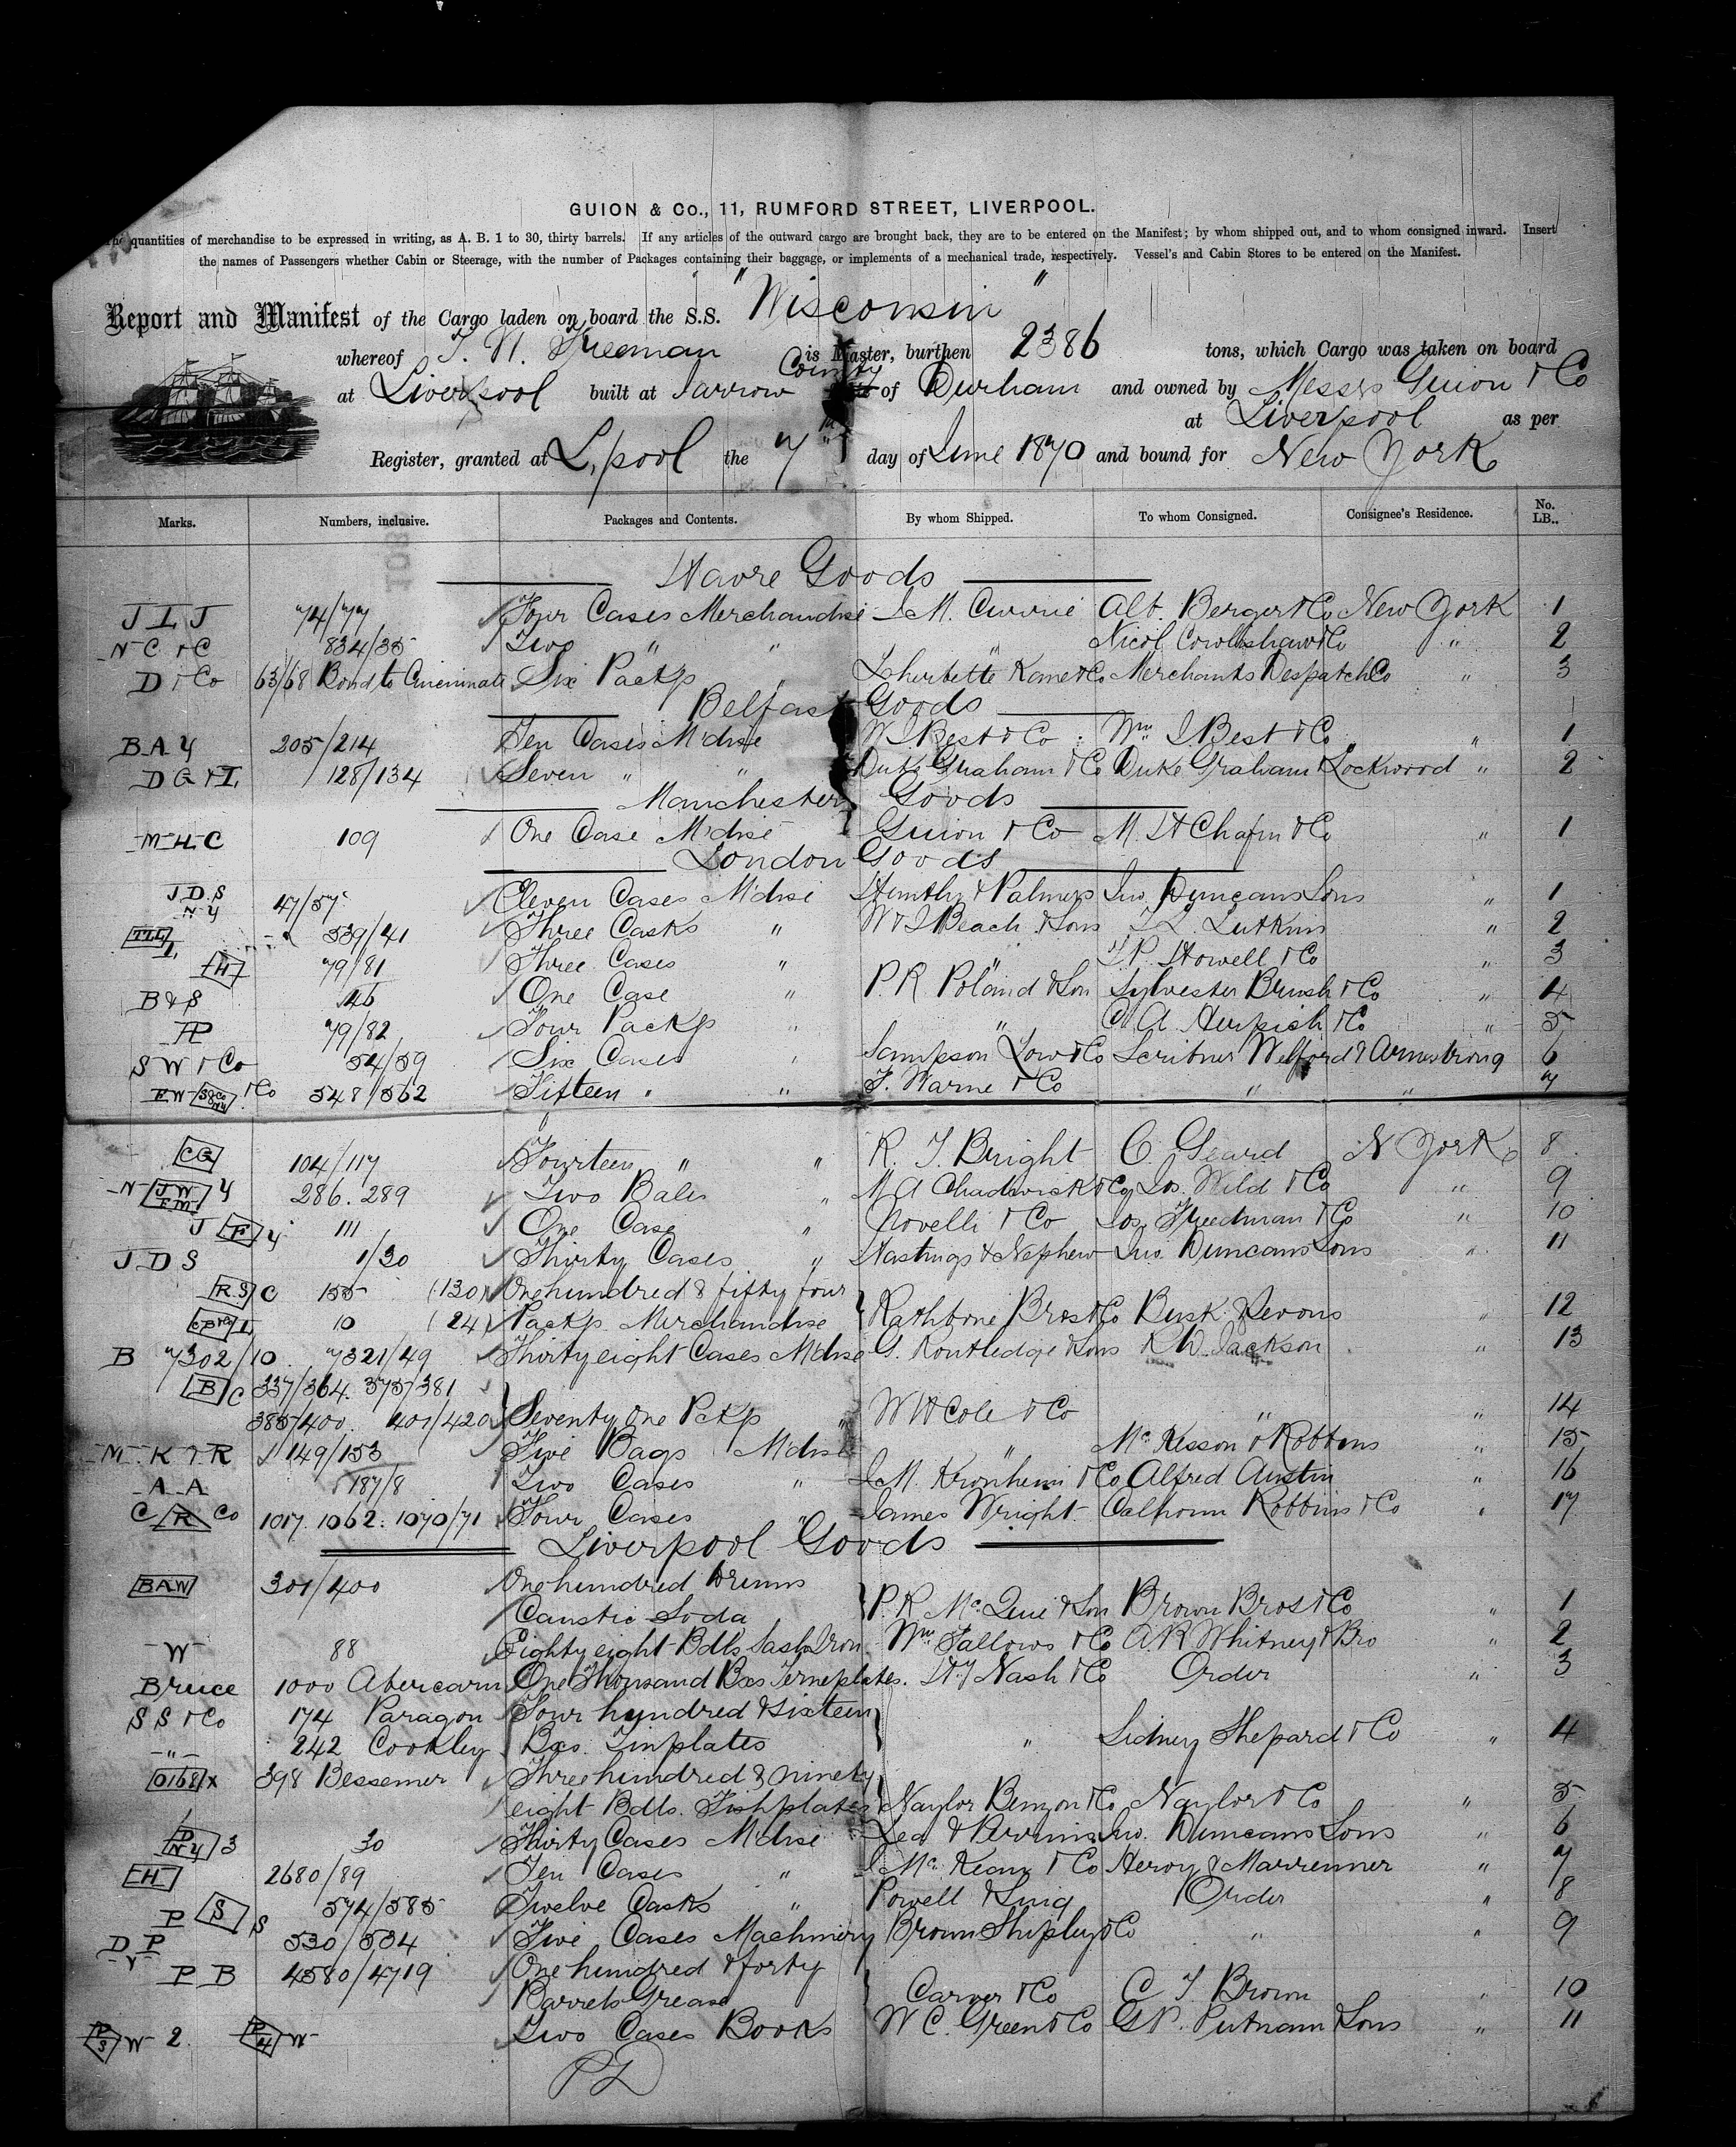 GUION & Co., 11, RUMFORD STREET, LIVERPOOL.
The quantities of merchandise to be expressed in writing, as A. B. 1 to 30, thirty barrels. If any articles of the outward cargo are brought back, they are to be entered on the Manifest; by whom shipped out, and to whom consigned inward. Insert
the names of Passengers whether Cabin or Steerage, with the number of Packages containing their baggage, or implements of a mechanical trade, respectively. Vessel's and Cabin Stores to be entered on the Manifest.
Report and Manifest of the Cargo laden on board the S.S. "Wisconsin"
whereof T. W. Freeman is Master, burthen 2386 tons, which Cargo was taken on board
at Liverpool built at Jarrow County of Durham and owned by Messrs Guion & Co
at Liverpool as per
Register, granted at L,pool the 7th day of June 1870 and bound for New York
Marks. Numbers, inclusive. Packages and Contents. By whom Shipped. To whom Consigned. Consignee's Residence. No. LB..
Havre Goods
J L J 74/77 Four Cases Merchandise J. M. Currie Alb. Berger & Co New York 1
N C & C 834/35 Two " " " Nicol Cowlishaw & Co " 2
D & Co 63/68 Bond to Cincinnati Six Packgs " Lherbette Kane & Co Merchants Despatch Co " 3
Belfast Goods
B A Y 205/214 Ten Cases M'dise W J Best & Co Wm J Best & Co " 1
D G & L 128/134 Seven " " Duke Graham & Co Duke Graham & Lockwood " 2
Manchester Goods
M H C 109 One Case M'dise Guion & Co M. H Chapin & Co " 1
London Goods
J. D. S N Y 47/57 Eleven Cases M'dise Huntly & Palmers Jno. Duncans Sons " 1
TLL L 539/41 Three Casks " W & J Beach & Sons T. L. Lutkins " 2
H 79/81 Three Cases " " T. P. Howell & Co " 3
B & S 46 One Case " P. R. Poland & Son Sylvester Brush & Co " 4
79/82 Four Packgs " " C. A. Herpich & Co " 5
S W & Co 54/59 Six Cases " Sampson Low & Co Scribner Welford & Armstrong 6
F W & Co 548/562 Fifteen " " F. Warne & Co " " 7
CG 104/117 Fourteen " " R. T. Bright C. Geard N York 8
N JW FM Y 286. 289 Two Bales " M A Chadwick & Co Jos. Wild & Co " 9
J F Y 111 One Case " Novelli & Co Jos. Freedman & Co " 10
J D S 1/30 Thirty Cases " Hastings & Nephew Jno. Duncans Sons " 11
R.S C 155 (130) One hundred & fifty four
10 (24) Packgs Merchandise Rathbone Bros & Co Busk & Jevons " 12
B 7302/10. 7321/49 Thirty eight Cases M'dise G. Routledge & Sons R W. Jackson " 13
B C 337/364. 375/381
385/400. 401/420 Seventy One Pckgs " W H Cole & Co " " 14
M. K & R 149/153 Five Bags M'dise " Mc Kesson & Robbins " 15
A A 187/8 Two Cases " J. M. Kronheim & Co Alfred Austin " 16
C R Co 1017. 1062. 1070/71 Four Cases " James Wright Calhoun Robbins & Co " 17
Liverpool Goods
BAW 301/400 One hundred Drums
Caustic Soda P. R. Mc Quie & Son Brown Bros & Co " 1
W 88 Eighty eight Bdls Sash Iron Wm Fallows & Co A R Whitney & Bro " 2
Bruce 1000 Abercarn One Thousand Bxs Terneplates. Hy Nash & Co Order " 3
S S & Co 174 Paragon Four hundred & sixteen
" 242 Cookley Bxs. Tinplates " Sidney Shepard & Co " 4
0168 X 398 Bessemer Three hundred & ninety
eight Bdls. Fishplates Naylor Benzon & Co Naylor & Co " 5
D NY 3 30 Thirty Cases M'dise Lea & Perrins Jno. Duncans Sons " 6
H 2680/89 Ten Cases " J Mc Kean & Co Heroy & Marrenner " 7
P S S 574/585 Twelve Casks " Powell & Order " 8
D P V 530/534 Five Cases Machinery Brown Shipley & Co " " 9
P B 4580/4719 One hundred & forty
Barrels Grease Carver & Co C. T. Brown " 10
P 3 W 2. P 4 W Two Cases Books W C. Green & Co G P. Putnam & Sons " 11